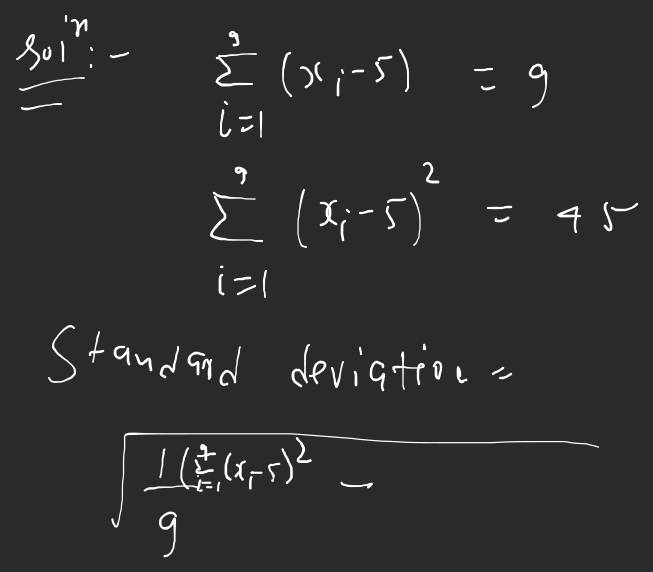 Sol'n :- 9
∑ (xi-5) = 9
i=1
9
∑ (xi-5)² = 45
i=1
Standard deviation =
√ 1 (9∑i=1 (xi-5)² -
9